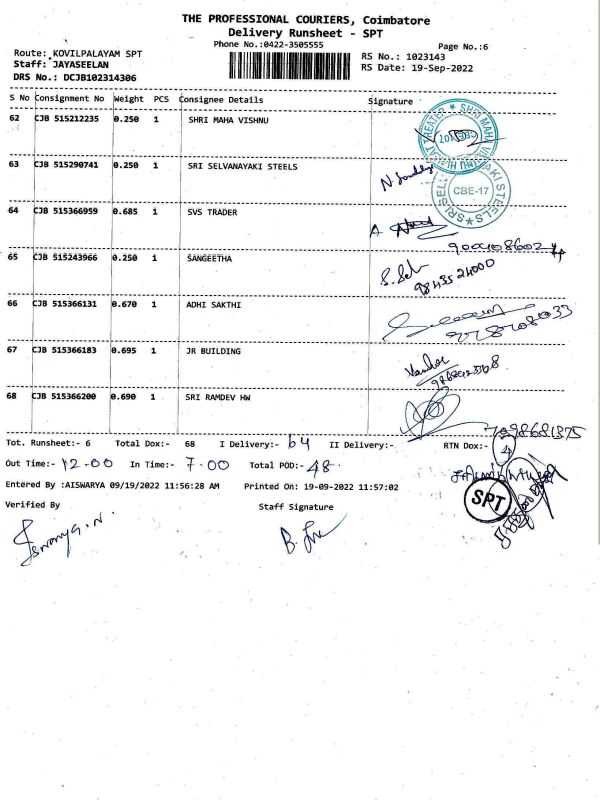 THE PROFESSIONAL COURIERS, Coimbatore
Delivery Runsheet - SPT
Phone No.:0422-3505555
Page No.:6
Route: KOVILPALAYAM SPT
RS No.: 1023143
Staff: JAYASEELAN
RS Date: 19-Sep-2022
DRS No.: DCJB102314306
S No Consignment No Weight PCS Consignee Details Signature
62 CJB 515212235 0.250 1 SHRI MAHA VISHNU
63 CJB 515290741 0.250 1 SRI SELVANAYAKI STEELS
CBE-17
64 CJB 515366959 0.685 1 SVS TRADER
65 CJB 515243966 0.250 1 SANGEETHA
9843524000
66 CJB 515366131 0.670 1 ADHI SAKTHI
67 CJB 515366183 0.695 1 JR BUILDING
68 CJB 515366200 0.690 1 SRI RAMDEV HW
7098681375
Tot. Runsheet:- 6 Total Dox:- 68 I Delivery:- 64 II Delivery:- RTN Dox:- 4
Out Time:- 12.00 In Time:- 7.00 Total POD:- 48
Entered By :AISWARYA 09/19/2022 11:56:28 AM Printed On: 19-09-2022 11:57:02
SPT
Verified By Staff Signature